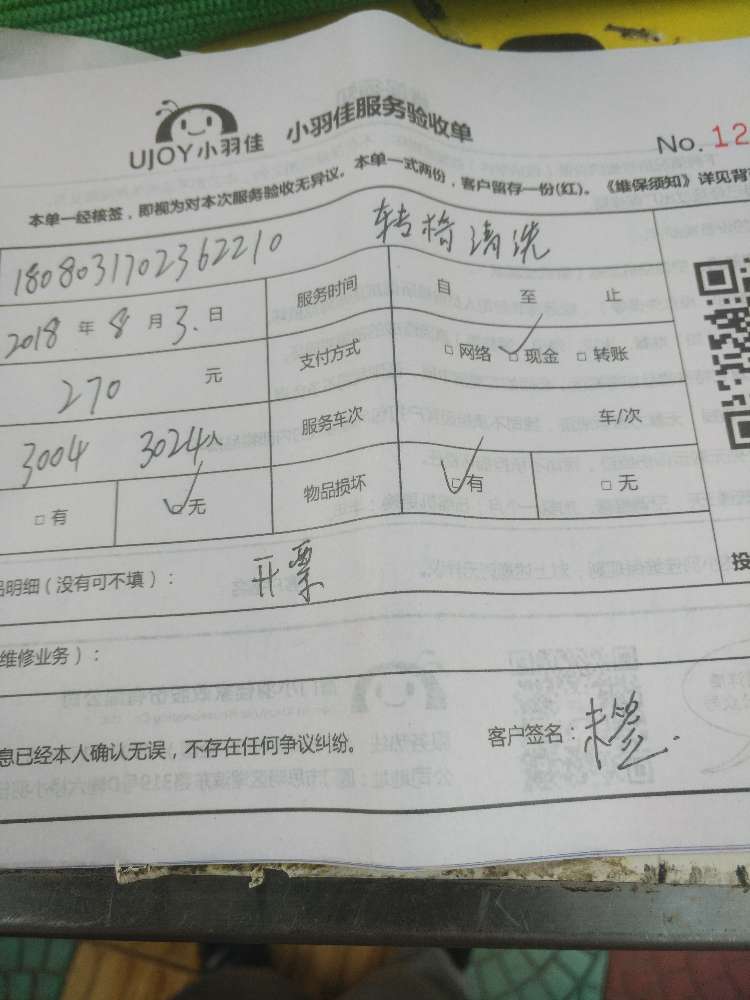 UJOY小羽佳 小羽佳服务验收单
No. 12
本单一经核签，即视为对本次服务验收无异议。本单一式两份，客户留存一份(红)。《维保须知》详见背
1808031702362210 转椅清洗
2018 年 8 月 3 日 服务时间 自 至 止
270 元 支付方式 □ 网络 ☑ 现金 □ 转账
3004 3024 人 服务车次 车/次
□ 有 ☑ 无 物品损坏 ☑ 有 □ 无
明细（没有可不填）： 开票
投
维修业务）：
息已经本人确认无误，不存在任何争议纠纷。 客户签名：未签